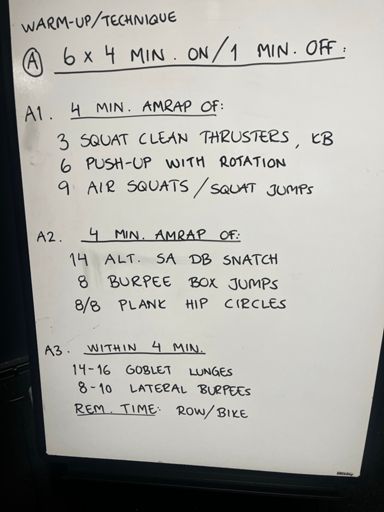 WARM-UP/TECHNIQUE
(A) 6 x 4 MIN. ON/1 MIN. OFF:
A1. 4 MIN. AMRAP OF:
3 SQUAT CLEAN THRUSTERS, KB
6 PUSH-UP WITH ROTATION
9 AIR SQUATS/SQUAT JUMPS
A2. 4 MIN. AMRAP OF:
14 ALT. SA DB SNATCH
8 BURPEE BOX JUMPS
8/8 PLANK HIP CIRCLES
A3. WITHIN 4 MIN.
14-16 GOBLET LUNGES
8-10 LATERAL BURPEES
REM. TIME: ROW/BIKE